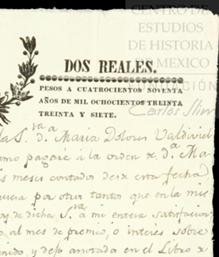 CENTRO DE
ESTUDIOS
DE HISTORIA
DE MEXICO
DOS REALES.
PESOS A CUATROCIENTOS NOVENTA
AÑOS DE MIL OCHOCIENTOS TREINTA
TREINTA Y SIETE.
Carlos
la S.ra D.a Maria Dolores Valdiviel
como pagaré a la orden de D.a Ma
meses contados desde esta fecha
por otra tanta que en la mis
de dicha S.a a mi entera satisfaccion
al mes de premio, o interes sobre
y dejo anotada en el Libro